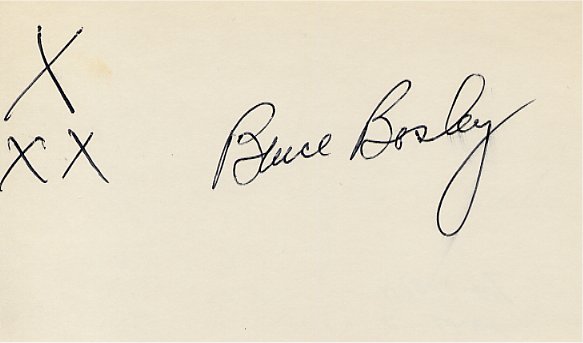 X
X X Bruce Bosley